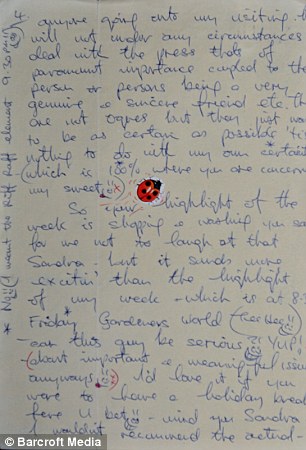 4 anyone going onto my visiting -
will not under any circumstances
deal with the press thats of
paramount importance coupled to the
person or persons being a very
genuine & sincere friend etc. Th
are not ogres, but they just wan
to be as certain as possible
nthing to do with my own certain
(which is 100% where you are concern
my sweet
So your highlight of the
week is shopping & washing you say
for me not to laugh at that
Sandra. but it sounds more
excitin' than the highlight
of my week - which is at 8.
Friday Gardeners World (hee hee)
- can this guy be serious?! YUP!
(about important & meaningful issu
anyways!! I'd love it if you
were to have a holiday break
here U bet - mind you Sandra
I wouldn't recommend the actual -
* No!! (I meant the riff raff element 9.30pm)
© Barcroft Media